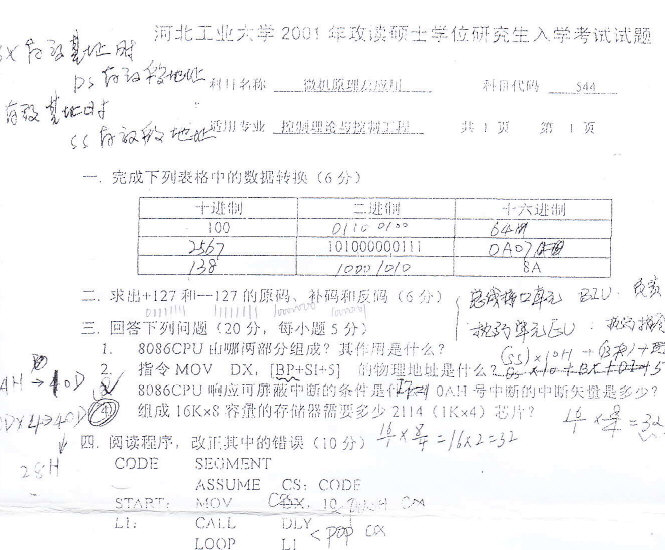 河北工业大学2001年攻读硕士学位研究生入学考试试题
SX存放基址时
DS存放段地址
科目名称 微机原理及应用 科目代码 544
存放基址时
SS存放段地址
适用专业 控制理论与控制工程 共1页 第1页
一. 完成下列表格中的数据转换(6分)
十进制 二进制 十六进制
100 0110 0100 64H
2567 101000000111 0A07H
138 1000 1010 8A
二. 求出+127和—127的原码、补码和反码(6分)
总线接口单元 BIU.
执行单元EU.
三. 回答下列问题(20分,每小题5分)
1. 8086CPU由哪两部分组成?其作用是什么?
2. 指令MOV DX,[BP+SI+5] 的物理地址是什么?
8086CPU响应可屏蔽中断的条件是什 0AH号中断的中断矢量是多少?
4H → 10D
组成16K×8容量的存储器需要多少2114(1K×4)芯片?
28H
四. 阅读程序,改正其中的错误(10分) 16/1 × 8/4 = 16×2=32
CODE SEGMENT
ASSUME CS:CODE
START: MOV CX, 10
L1: CALL DLY
LOOP L1
< pop cx